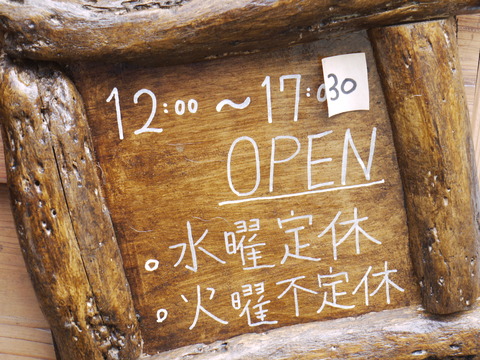 12:00〜17:30
OPEN
。水曜定休
。火曜不定休